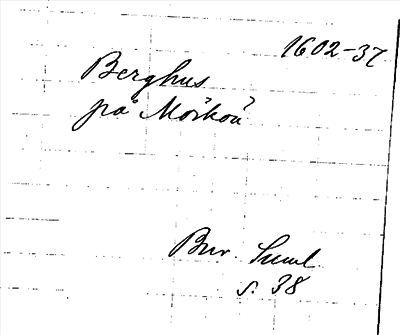 1602-37
Berghus
på Mörkön
Bur. Suml.
s. 38